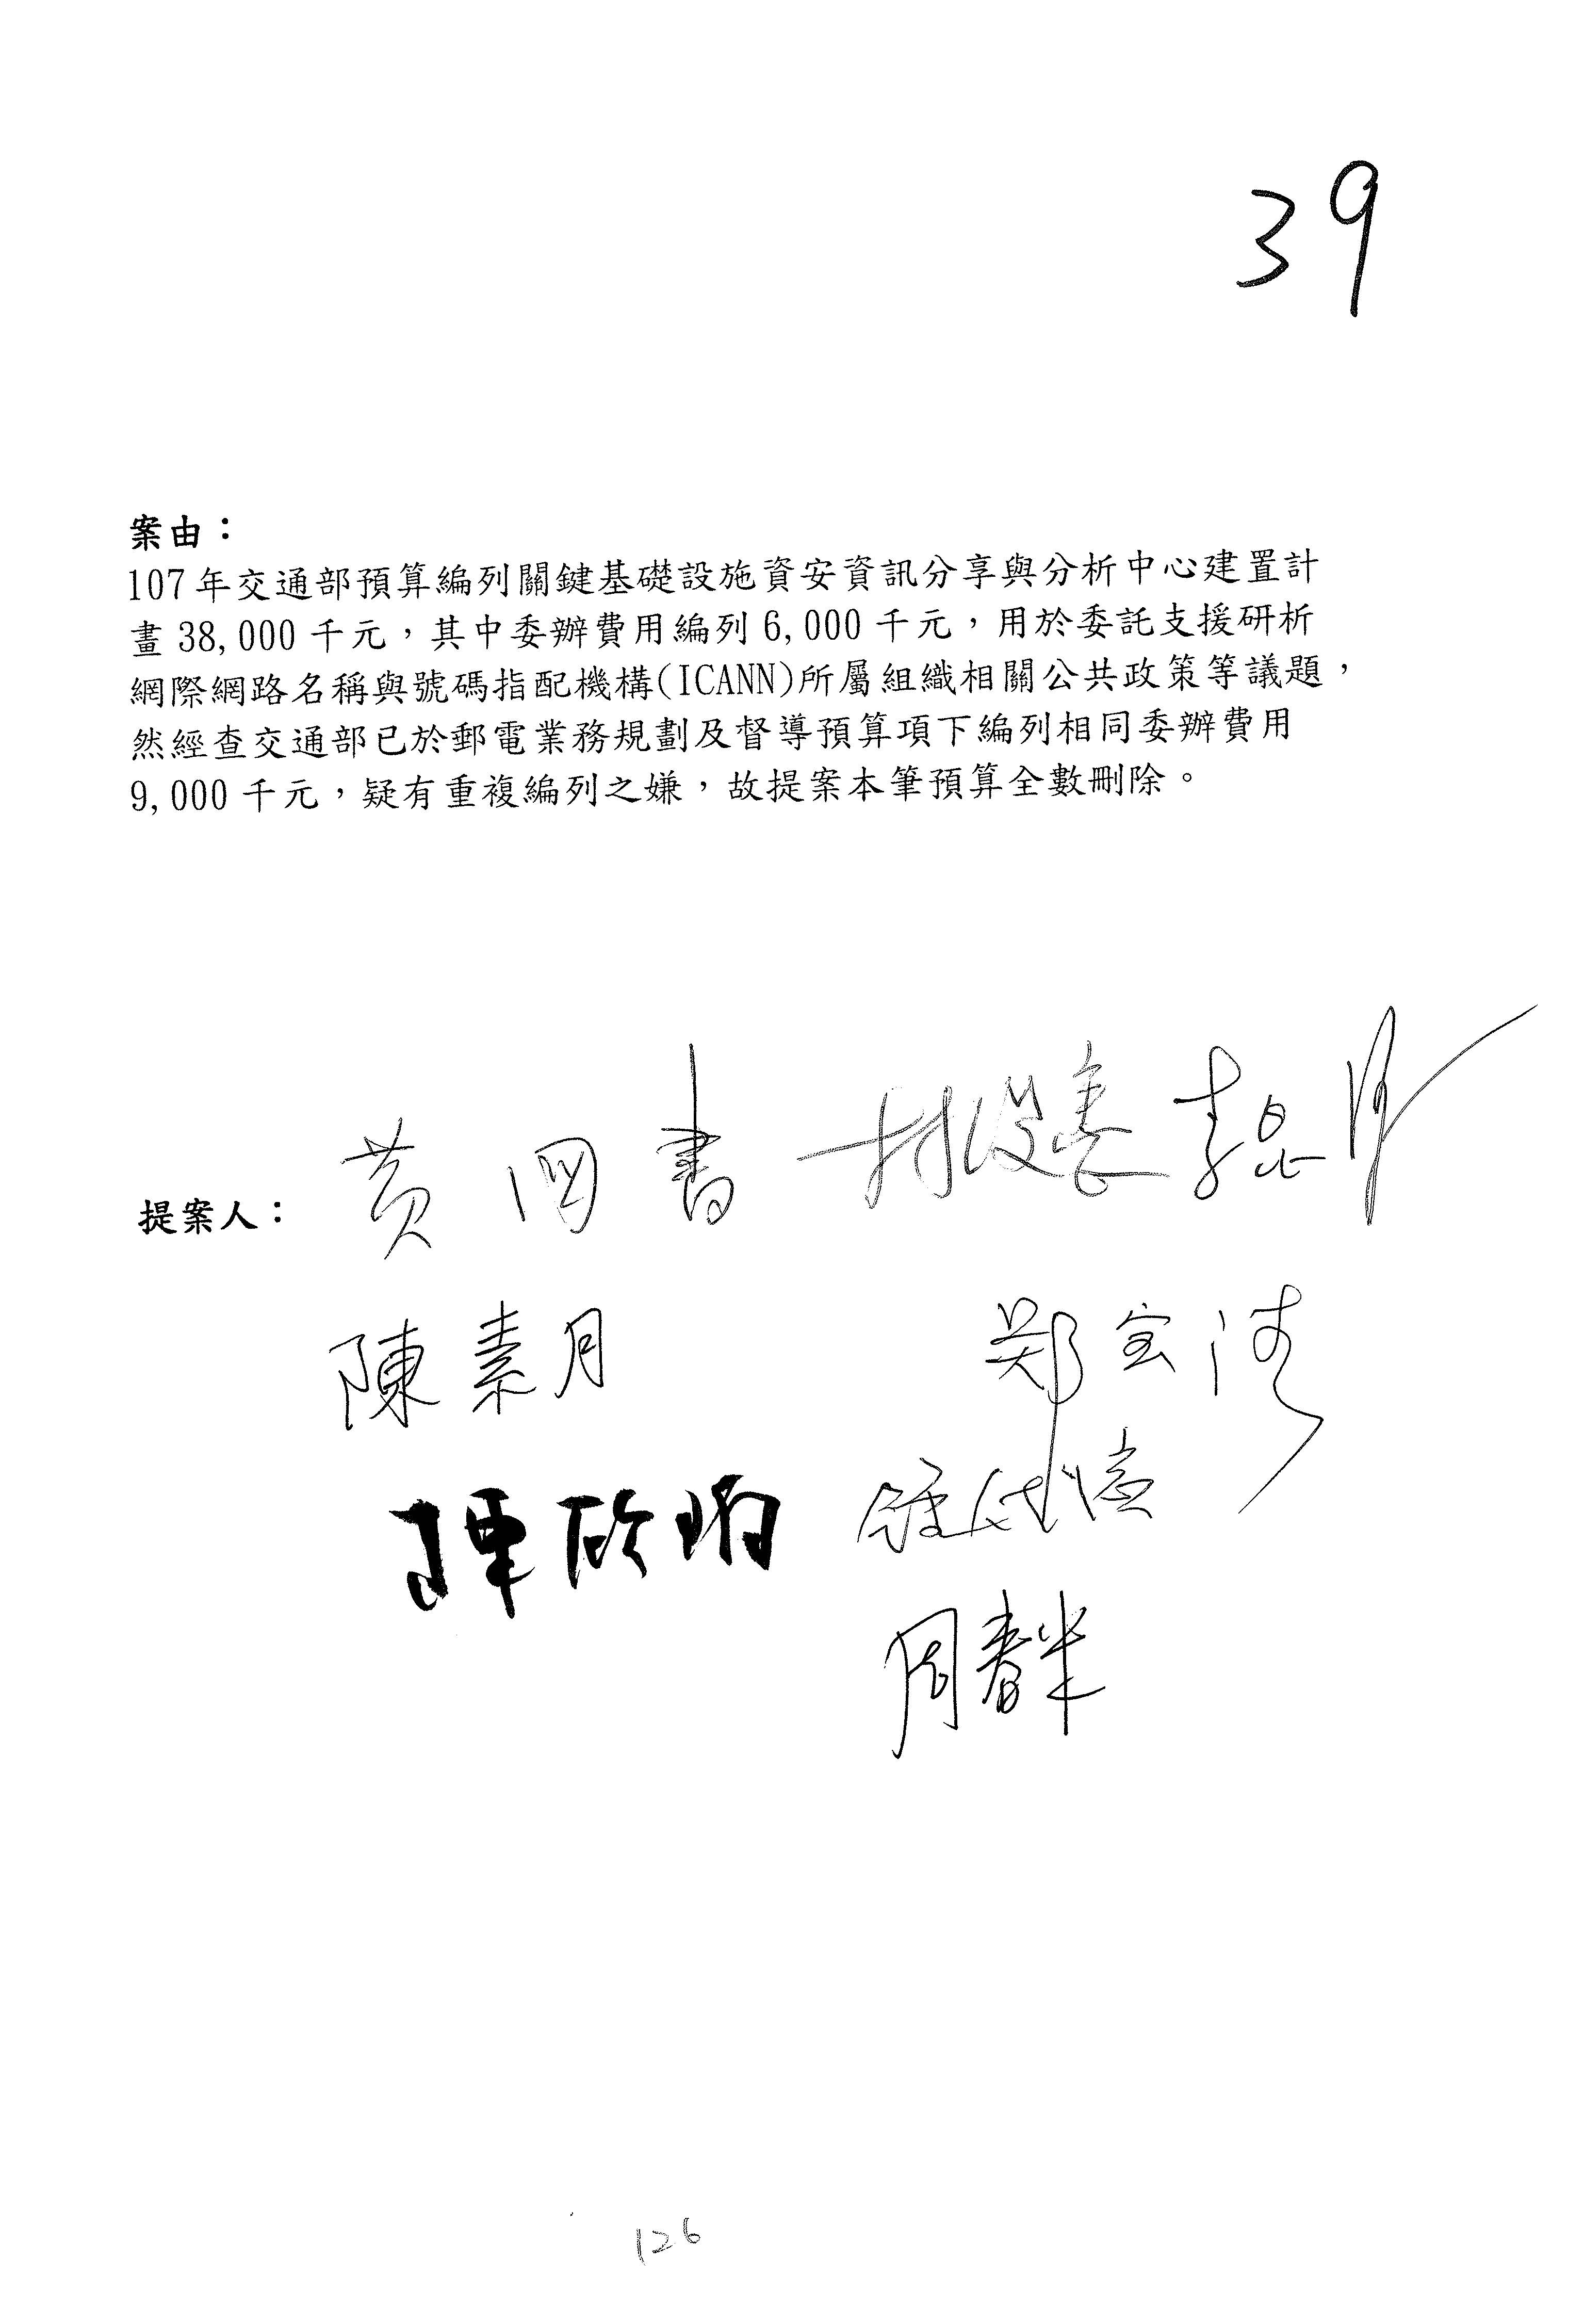 39
案由：
107年交通部預算編列關鍵基礎設施資安資訊分享與分析中心建置計
畫38,000千元，其中委辦費用編列6,000千元，用於委託支援研析
網際網路名稱與號碼指配機構(ICANN)所屬組織相關公共政策等議題，
然經查交通部已於郵電業務規劃及督導預算項下編列相同委辦費用
9,000千元，疑有重複編列之嫌，故提案本筆預算全數刪除。
提案人：
陳素月
126